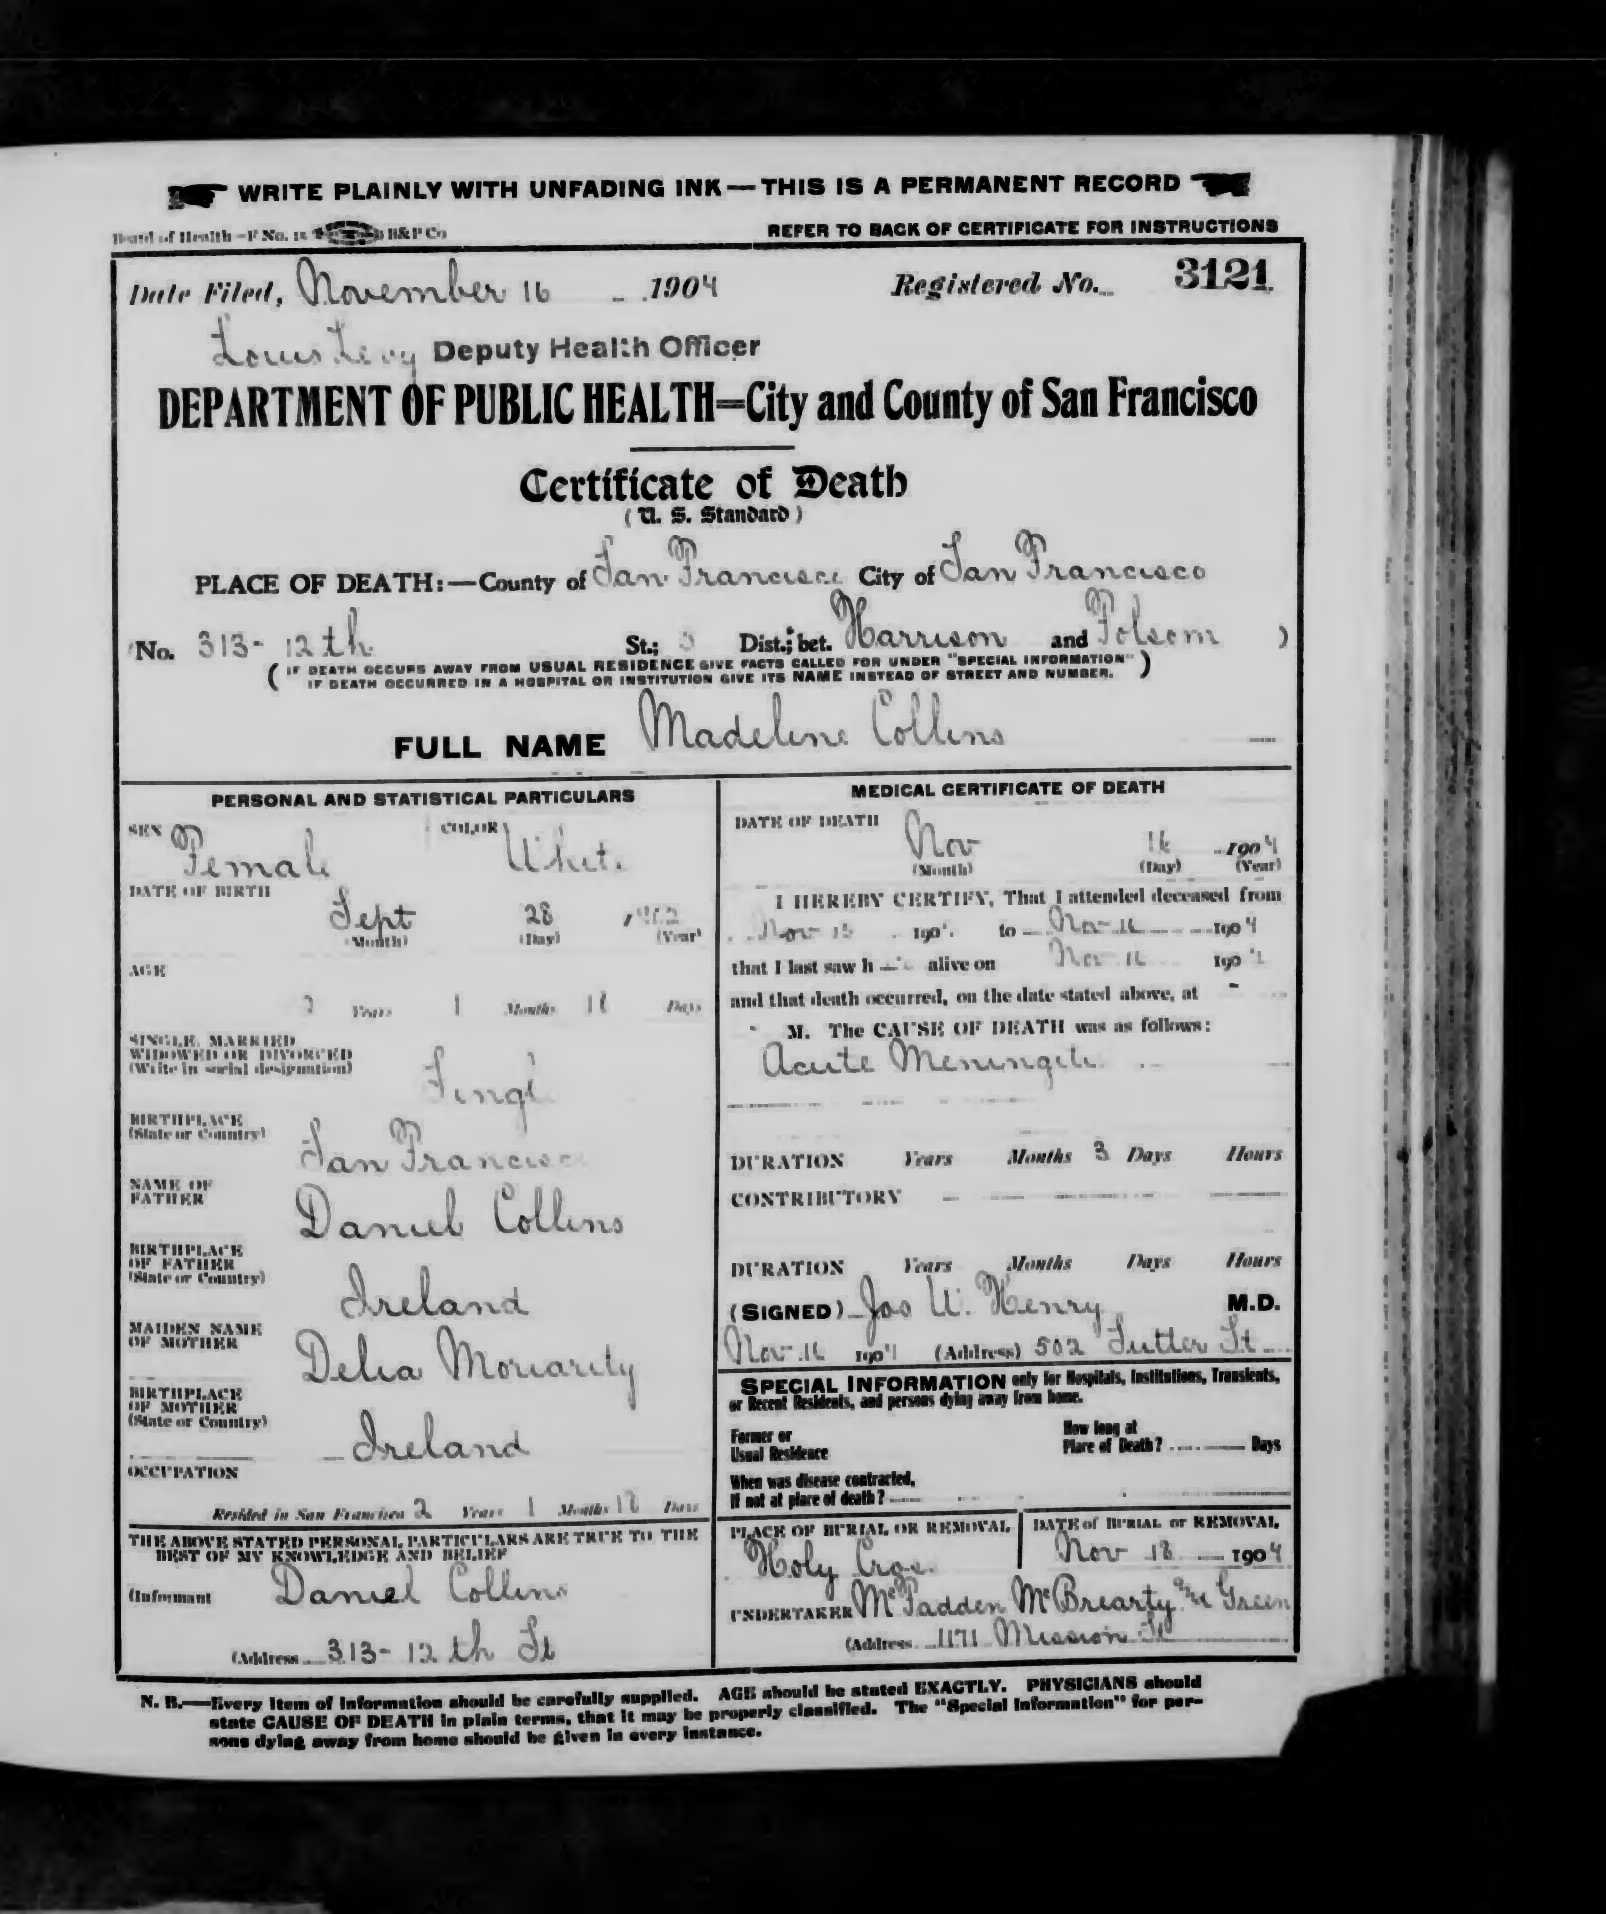 WRITE PLAINLY WITH UNFADING INK — THIS IS A PERMANENT RECORD
Board of Health—F No. 15 B&P Co REFER TO BACK OF CERTIFICATE FOR INSTRUCTIONS
Date Filed, November 16 1904 Registered No. 3121
Louis Levy Deputy Health Officer
DEPARTMENT OF PUBLIC HEALTH=City and County of San Francisco
Certificate of Death
( U. S. Standard )
PLACE OF DEATH:—County of San Francisco City of San Francisco
No. 313- 12th St.; Dist.; bet. Harrison and Folsom )
( IF DEATH OCCURS AWAY FROM USUAL RESIDENCE GIVE FACTS CALLED FOR UNDER "SPECIAL INFORMATION"
IF DEATH OCCURRED IN A HOSPITAL OR INSTITUTION GIVE ITS NAME INSTEAD OF STREET AND NUMBER. )
FULL NAME Madeline Collins
PERSONAL AND STATISTICAL PARTICULARS
SEX Female COLOR White
DATE OF BIRTH
Sept 28 1902
(Month) (Day) (Year)
AGE
2 Years 1 Months 18 Days
SINGLE, MARRIED
WIDOWED OR DIVORCED
(Write in social designation)
Single
BIRTHPLACE
(State or Country)
San Francisco
NAME OF
FATHER
Daniel Collins
BIRTHPLACE
OF FATHER
(State or Country)
Ireland
MAIDEN NAME
OF MOTHER
Delia Moriarity
BIRTHPLACE
OF MOTHER
(State or Country)
Ireland
OCCUPATION
Resided in San Francisco 2 Years 1 Months 18 Days
THE ABOVE STATED PERSONAL PARTICULARS ARE TRUE TO THE
BEST OF MY KNOWLEDGE AND BELIEF
(Informant Daniel Collins
(Address 313- 12th St
MEDICAL CERTIFICATE OF DEATH
DATE OF DEATH
Nov 16 1904
(Month) (Day) (Year)
I HEREBY CERTIFY, That I attended deceased from
Nov 190 to Nov 16 1904
that I last saw h alive on Nov 16 1904
and that death occurred, on the date stated above, at
M. The CAUSE OF DEATH was as follows:
Acute Meningitis
DURATION Years Months 3 Days Hours
CONTRIBUTORY
DURATION Years Months Days Hours
(SIGNED) Jos W. Henry M.D.
Nov 16 1904 (Address) 502 Sutter St
SPECIAL INFORMATION only for Hospitals, Institutions, Transients,
or Recent Residents, and persons dying away from home.
Former or
Usual Residence
How long at
Place of Death? Days
When was disease contracted,
If not at place of death?
PLACE OF BURIAL OR REMOVAL
Holy Cross
DATE of BURIAL or REMOVAL
Nov 18 1904
UNDERTAKER McFadden McBrearty & Green
(Address 1171 Mission St
N. B.—Every item of information should be carefully supplied. AGE should be stated EXACTLY. PHYSICIANS should
state CAUSE OF DEATH in plain terms, that it may be properly classified. The "Special Information" for per-
sons dying away from home should be given in every instance.